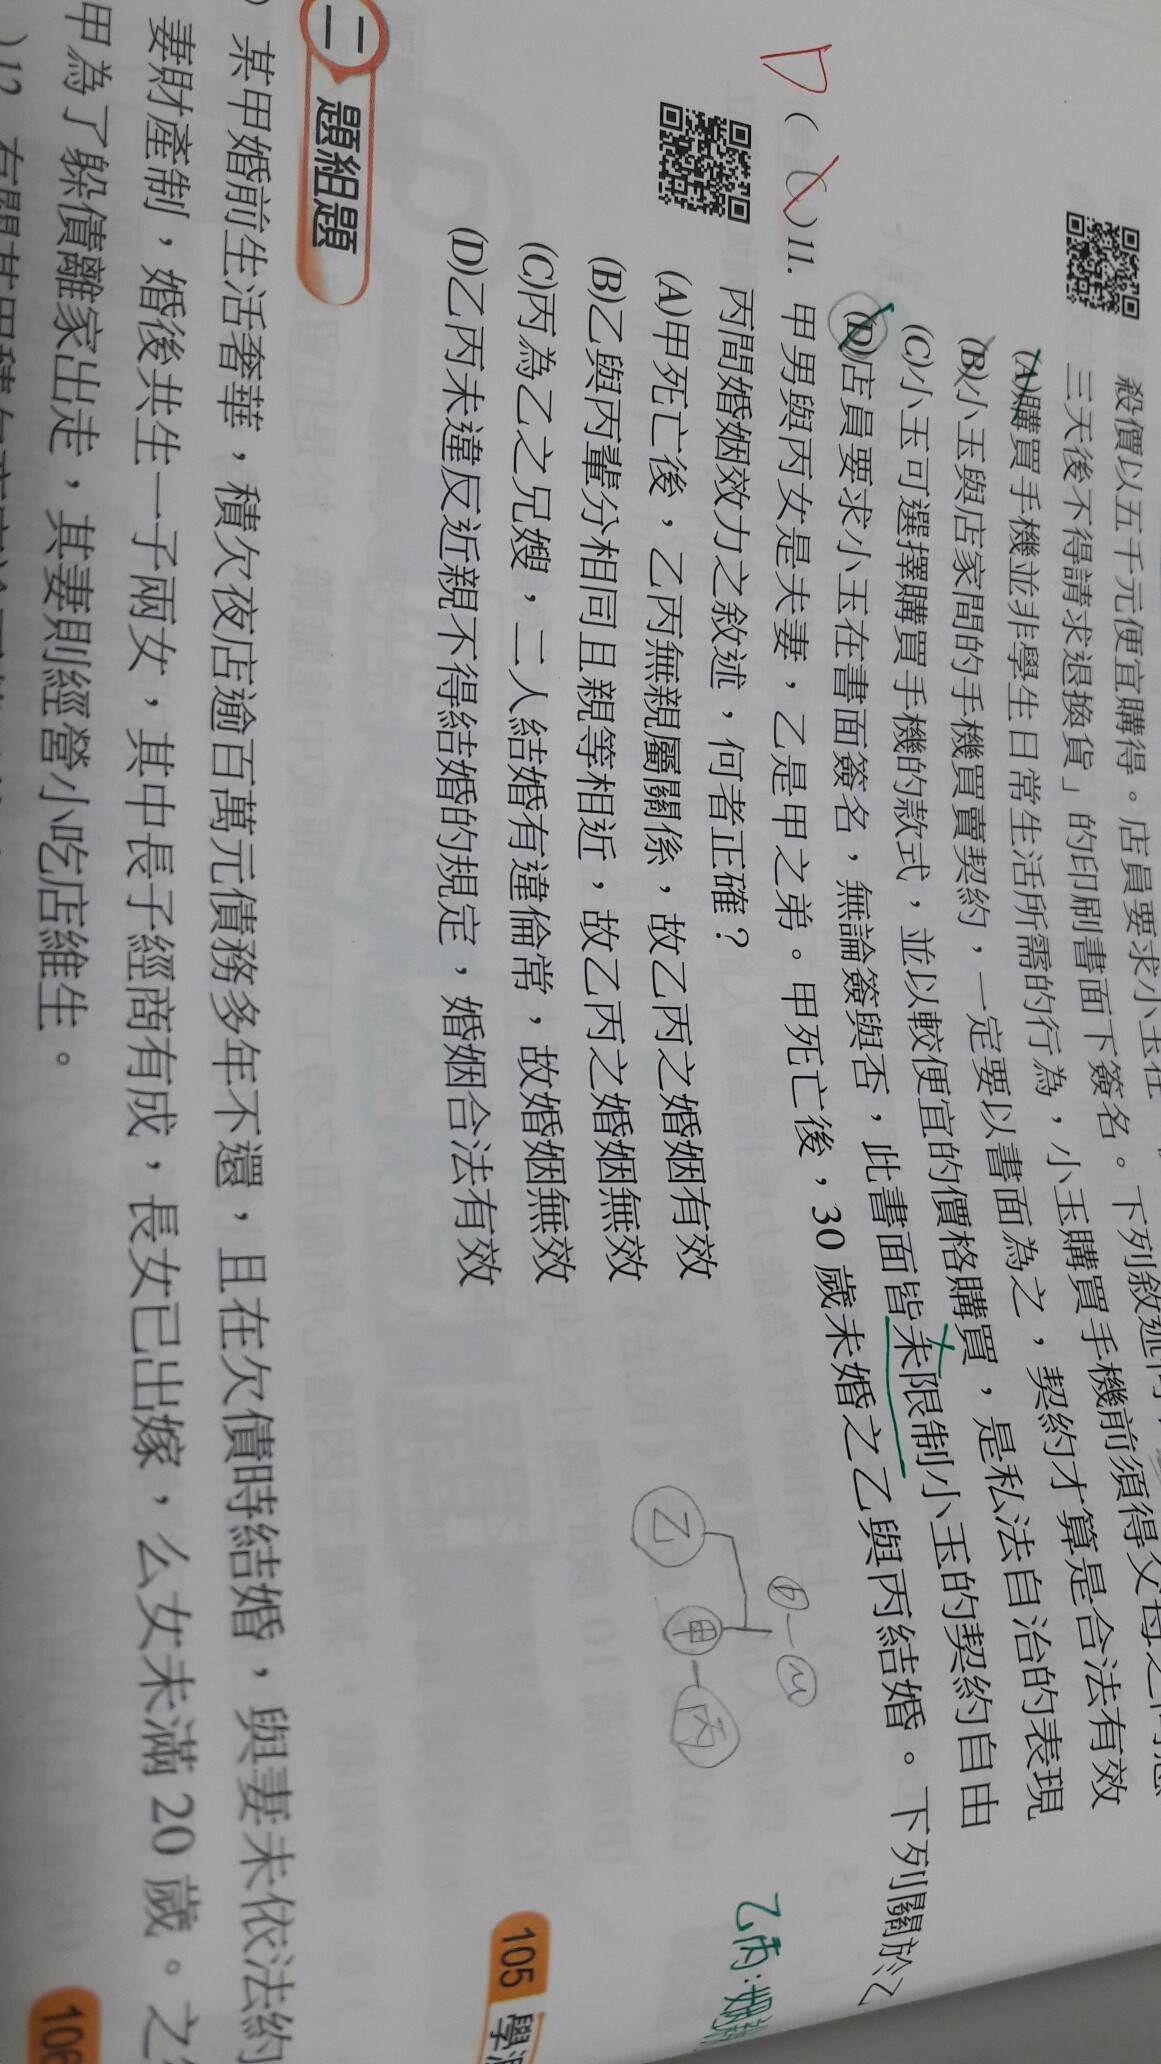 殺價以五千元便宜購得。店員要求小玉在
三天後不得請求退換貨」的印刷書面下簽名。下列敘述何
(A)購買手機並非學生日常生活所需的行為，小玉購買手機前須得父母之同意
(B)小玉與店家間的手機買賣契約，一定要以書面為之，契約才算是合法有效
(C)小玉可選擇購買手機的款式，並以較便宜的價格購買，是私法自治的表現
(D)店員要求小玉在書面簽名，無論簽與否，此書面皆未限制小玉的契約自由
D
( C )11. 甲男與丙女是夫妻，乙是甲之弟。甲死亡後，30歲未婚之乙與丙結婚。下列關於乙
丙間婚姻效力之敘述，何者正確？
(A)甲死亡後，乙丙無親屬關係，故乙丙之婚姻有效
(B)乙與丙輩分相同且親等相近，故乙丙之婚姻無效
(C)丙為乙之兄嫂，二人結婚有違倫常，故婚姻無效
(D)乙丙未違反近親不得結婚的規定，婚姻合法有效
乙
甲
丙
乙丙:姻
105 學測
二 題組題
某甲婚前生活奢華，積欠夜店逾百萬元債務多年不還，且在欠債時結婚，與妻未依法約
妻財產制，婚後共生一子兩女，其中長子經商有成，長女已出嫁，么女未滿20歲。之
甲為了躲債離家出走，其妻則經營小吃店維生。
106
)12. 有關某甲積欠